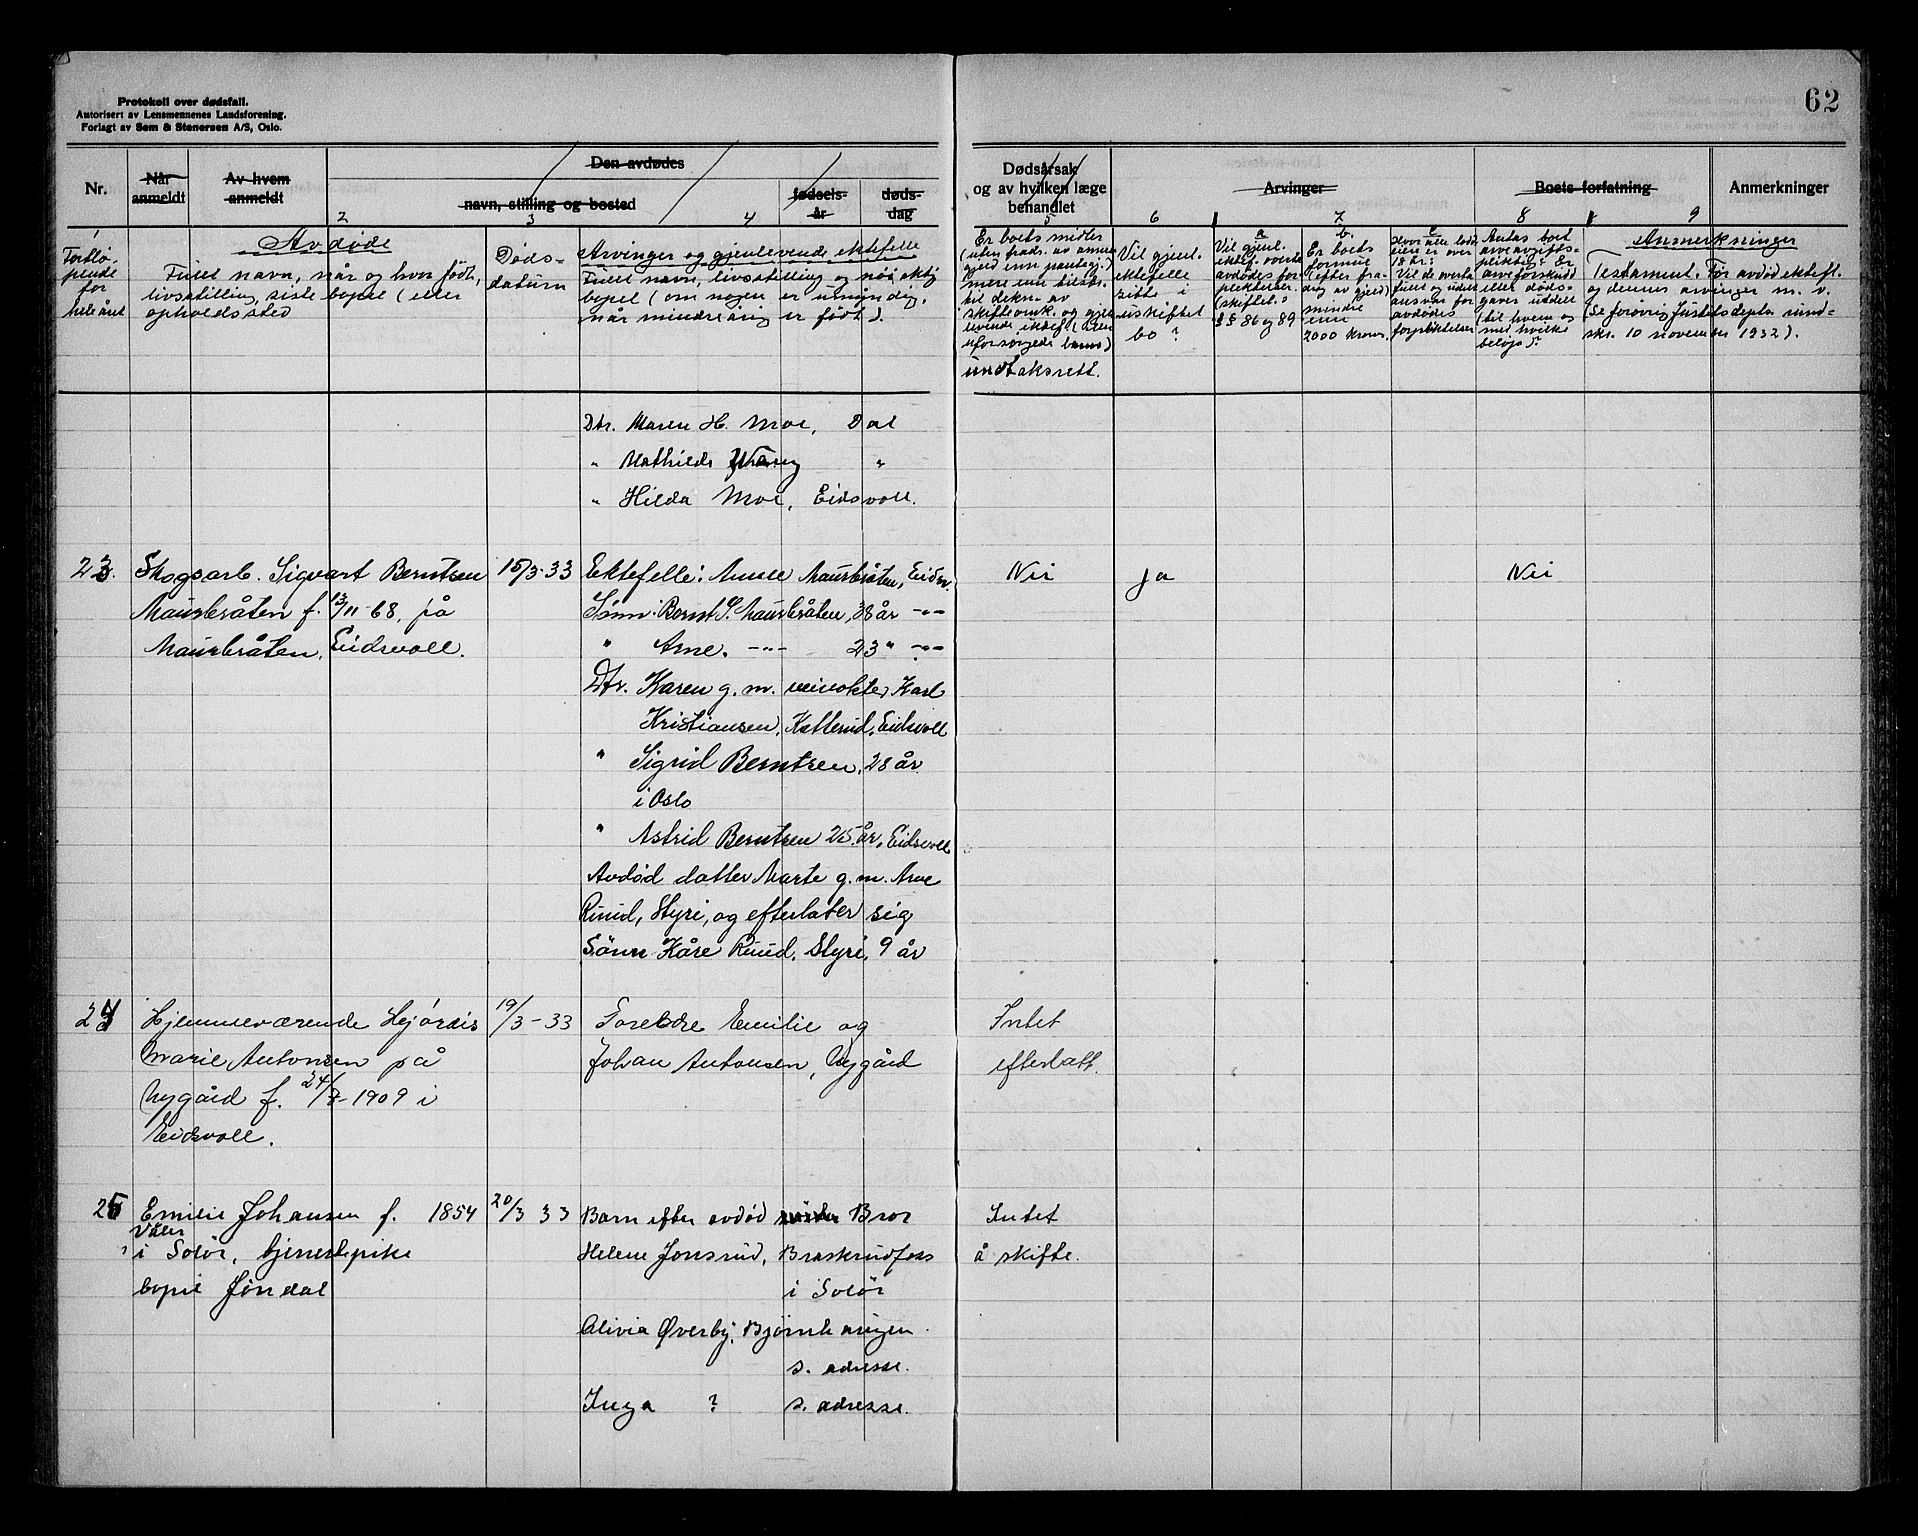 Protokoll over dødsfall.
Autorisert av Lensmennenes Landsforening.
Forlagt av Sem & Stenersen A/S, Oslo.
62
Nr.
Når anmeldt
Av hvem anmeldt
Den avdødes
navn, stilling og bosted
fødsels-år
døds-dag
Dødsårsak
og av hvilken læge
behandlet
Arvinger
Boets forfatning
Anmerkninger
1 2 3 4 5 6 7 8 9
Fortlø-
pende
for
hele året
Avdøde
Fullt navn, når og hvor født,
livsstilling, siste bopel (eller
opholdssted
Døds-
datum
Arvinger og gjenlevende ektefelle
Fullt navn, livsstilling og nøiaktig
bopel (om nogen er umyndig,
når mindreårig er født).
Er boets midler
(uten fradr. av annen
gjeld enn pantegj.)
mere enn tilstr.
til dekn. av
skifteomk. og gjen-
levende ektef. (uten
uforsørgede barns)
undtaksrett.
Vil gjenl.
ektefelle
sitte i
uskiftet
bo ?
a
Vil gjenl.
ektef. overta
avdødes for-
pliktelser.
(skiftel.s
§§ 86 og 89
b.
Er boets
formue
(efter fra-
drag av gjeld)
mindre
enn
2000 kroner.
c
18 år?
Vil de overta
ansvar for
avdødes
forpliktelser
Antas boet
arveavgifts-
pliktig? Er
arveforskudd
eller døds-
gaver utdelt
(til hvem og
med hvilke
beløp?
Anmerkninger
Testament. For avdød ektef.
og dennes arvinger m. v.
(Se forøvrig Justisdepts rund-
skr. 10 november 1932).
Dtr. Maren H. Moe, Dal
" Mathilde "
" Hilda Moe, Eidsvoll.
23. Skogsarb. Sigvart Berntsen 15/3-33 Ektefelle: Anne Maurbråten, Eidsv. Nei ja Nei
Maurbråten f. 13/11-68, på Sønn: Bernt S. Maurbråten, 38 år -"-
Maurbråten, Eidsvoll. " Arne. -"- 23 " -"-
Dtr. Karen g. m. veivokter Karl
Kristiansen, Katterud, Eidsvoll
" Sigrid Berntsen, 28 år
i Oslo
" Astrid Berntsen 25 år, Eidsvoll
Avdød datter Marte g. m. Arne
Ruud, Styri, og efterlater sig
Sønn Kåre Ruud, Styri, 9 år
24 Hjemmeværende Hjørdis 19/3-33 Foreldre Emilie og Intet
Marie Antonsen på Johan Antonsen, Nygård efterlatt.
Nygård f. 24/8-1909 i
Eidsvoll.
25 Emilie Johansen f. 1854 20/3 33 Barn efter avdød Bror Intet
Våler
i Solør, tjenestepike Helene Jonsrud, Braskerudfoss å skifte.
bopel Jøndal i Solør
Olivia Øverby, Bjørnhaugen
s. adresse.
Inga ? s. adresse.